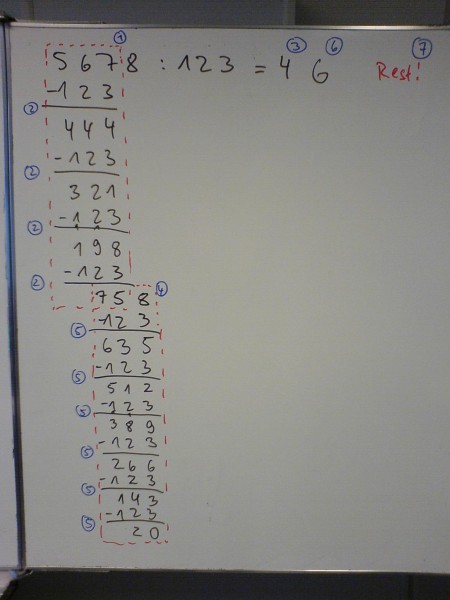 ①
5678 : 123 = 4 ③ 6 ⑥ Rest! ⑦
-123
②
444
-123
②
321
-123
②
198
-123
②
758 ④
-123
⑤
635
-123
⑤
512
-123
⑤
389
-123
⑤
266
-123
⑤
143
-123
⑤
20